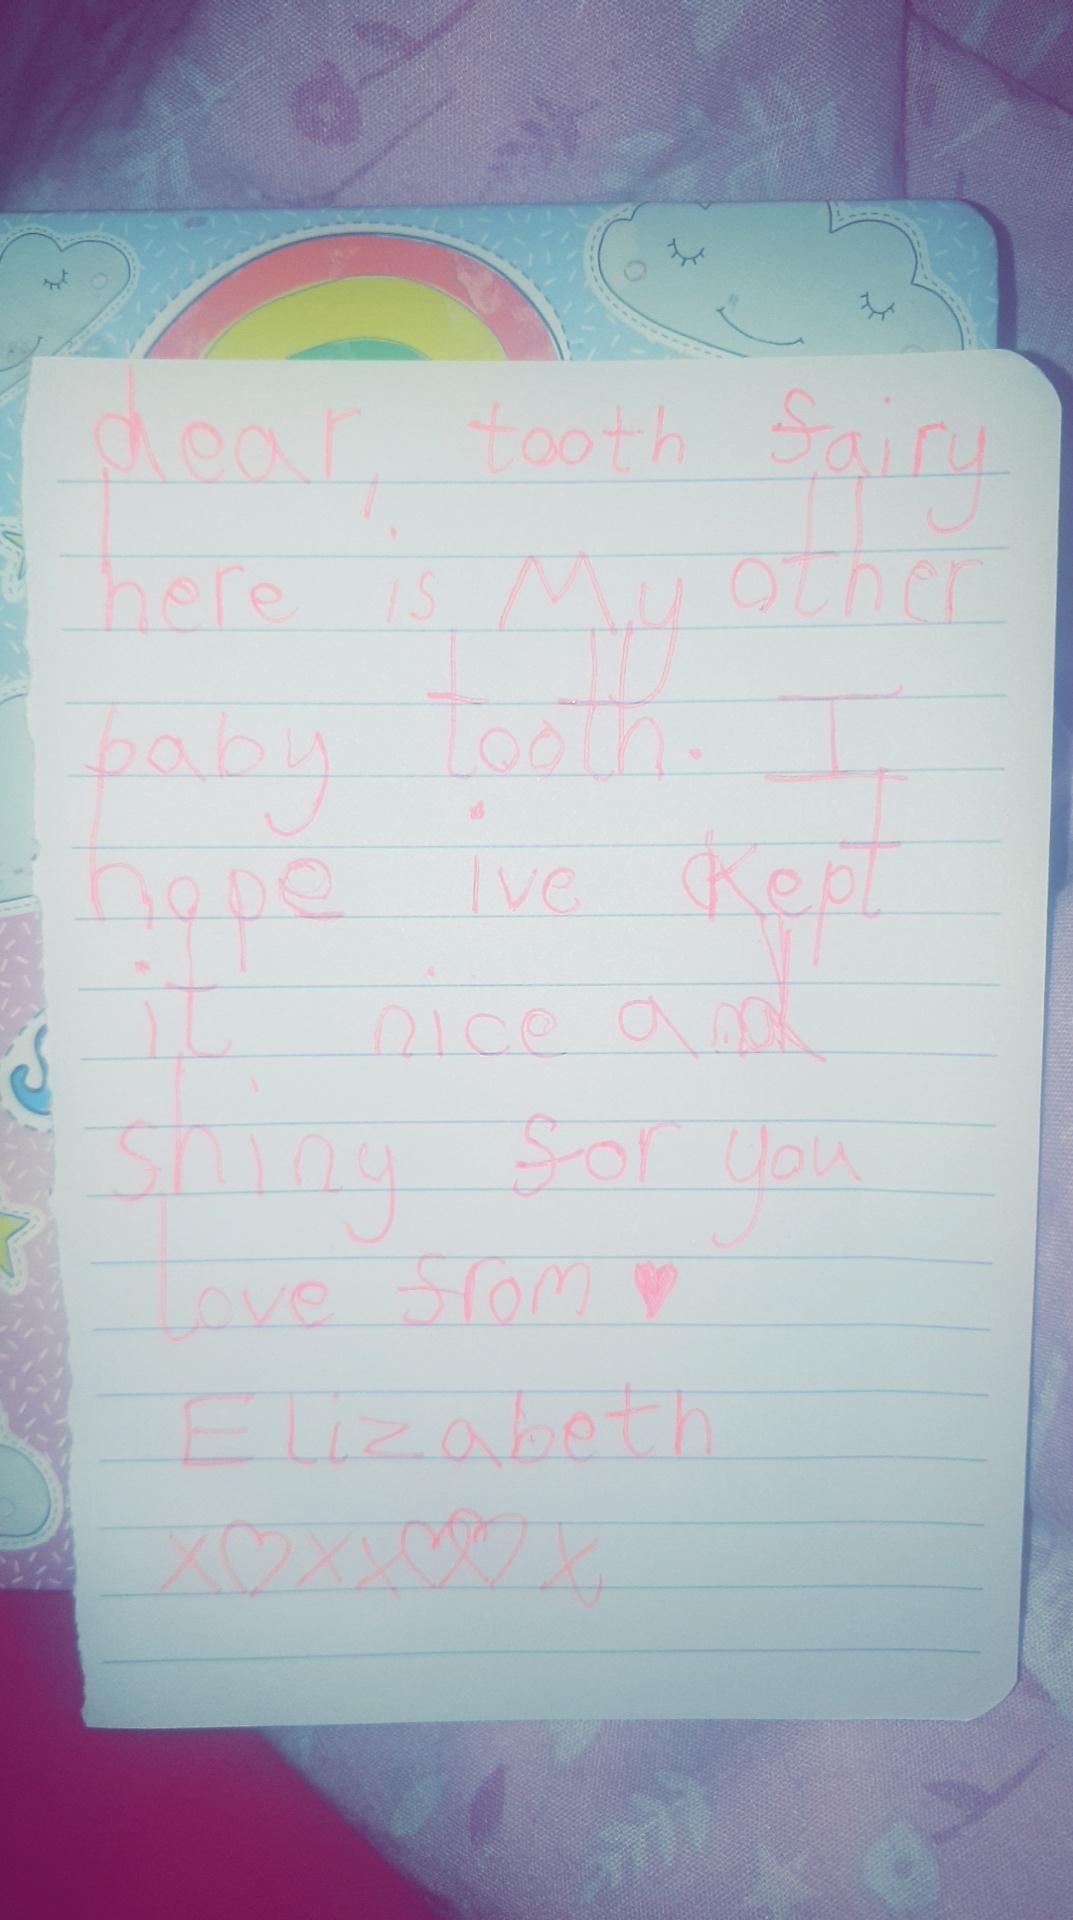 dear, tooth fairy
here is My other
baby tooth. I
hope ive kept
it nice and
shiny for you
love from ♥
Elizabeth
x♡xx♡♡x